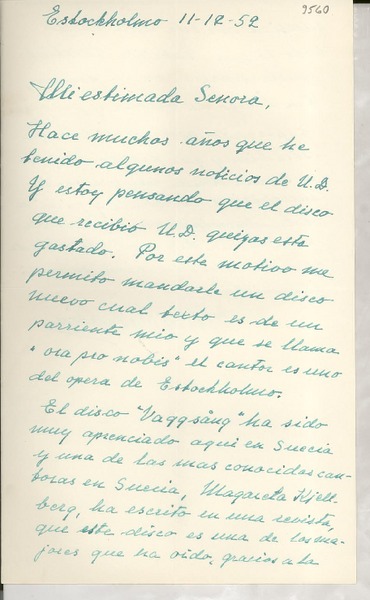 9560
Estockholmo 11-12-52
Mi estimada Senora,
Hace muchos años que he
tenido algunos noticios de U.D.
Y estoy pensando que el disco
que recibio U.D. quizas esta
gastado. Por este motivo me
permito mandarle un disco
nuevo cual texto es de un
parriente mio y que se llama
"ora pro nobis" el cantor es uno
del opera de Estockholmo.
El disco "Vaggsång" ha sido
muy aprenciado aqui en Suecia
y una de las mas conocidas can-
toras en Suecia, Magareta Kjell-
berg, ha escrito en una revista,
que este disco es una de los ma-
jores que ha oido, gracios a la